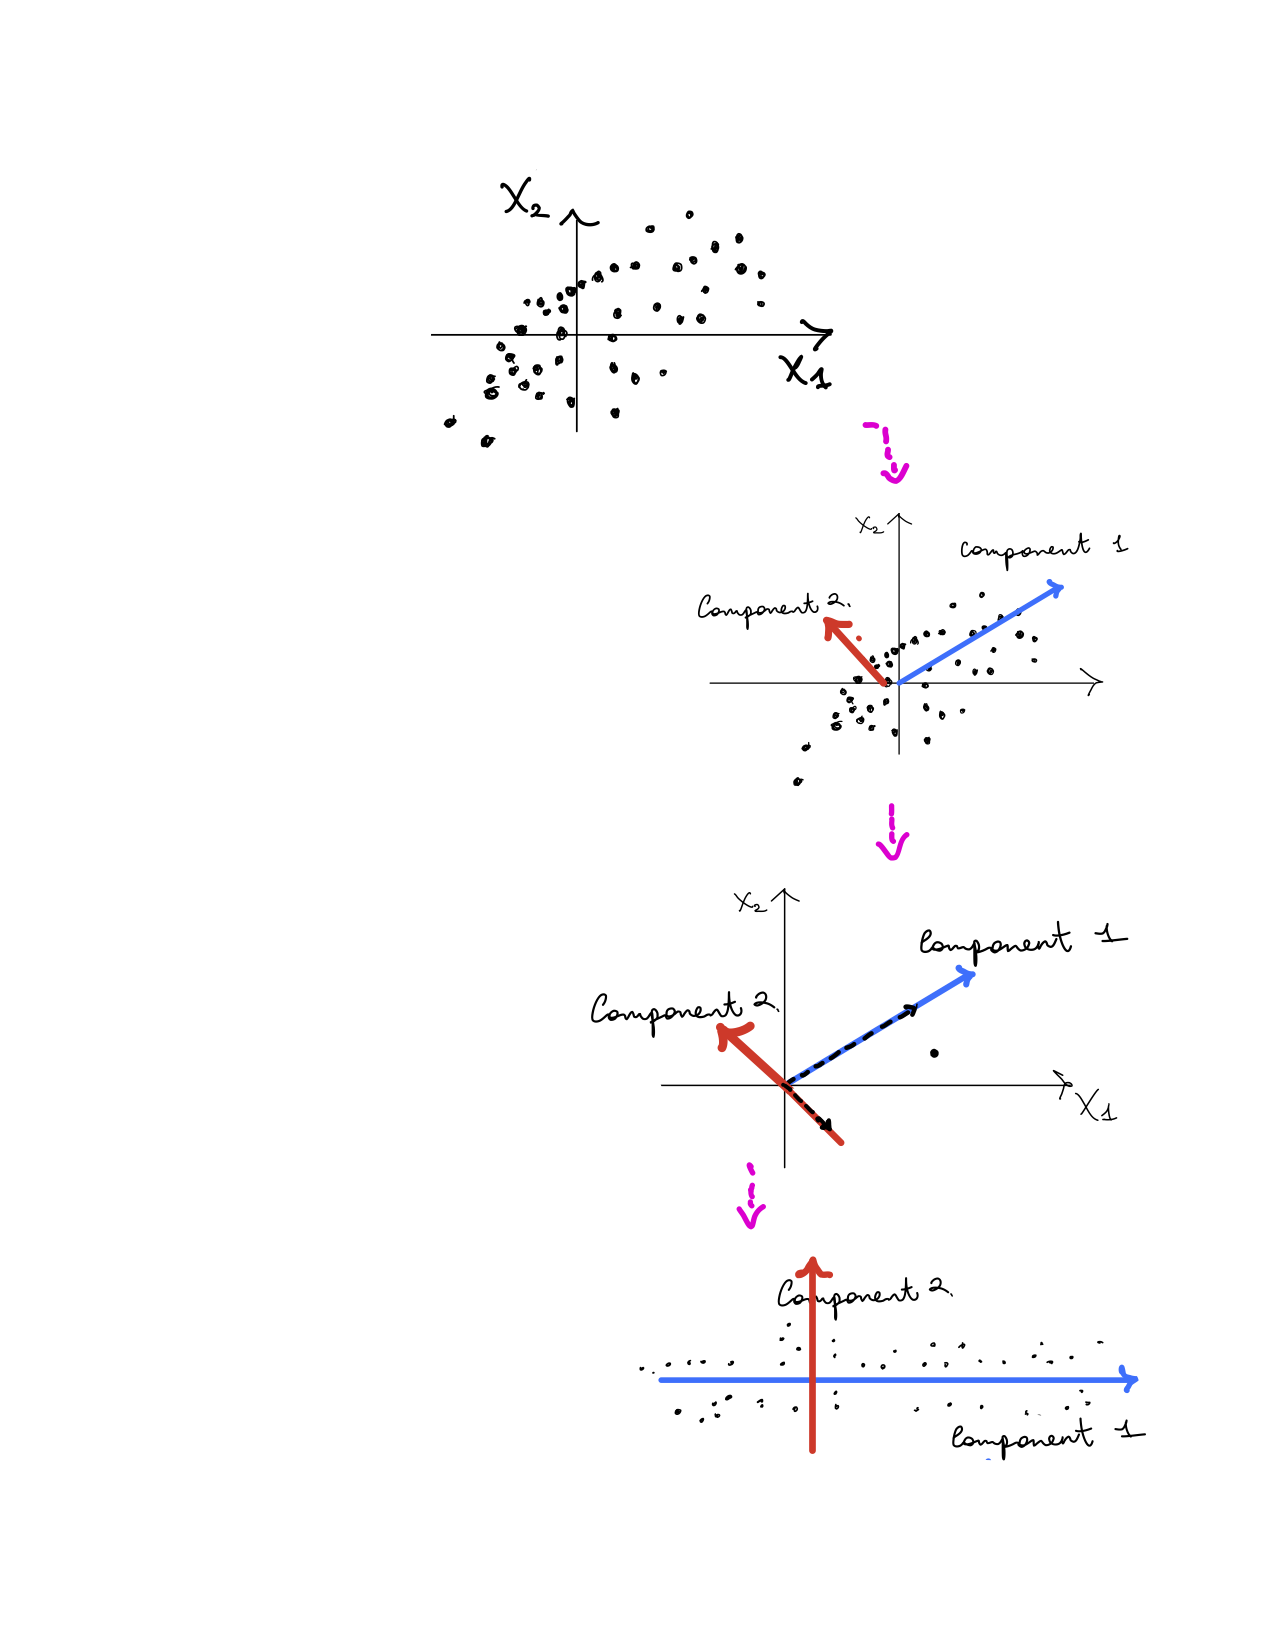 X2
X1
X2
Component 1
Component 2.
X2
Component 1
Component 2.
X1
Component 2.
Component 1